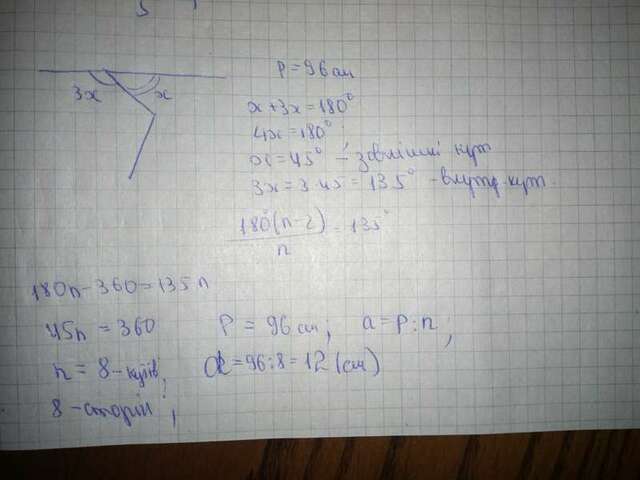 3x
x
P = 96 см
x + 3x = 180°
4x = 180°
x = 45° - зовнішній кут
3x = 3 · 45 = 135° - внутр. кут.
180(n-2) / n = 135°
180n - 360 = 135n
45n = 360
n = 8 - кутів;
8 - сторін;
P = 96 см; a = P : n;
a = 96 : 8 = 12 (см)